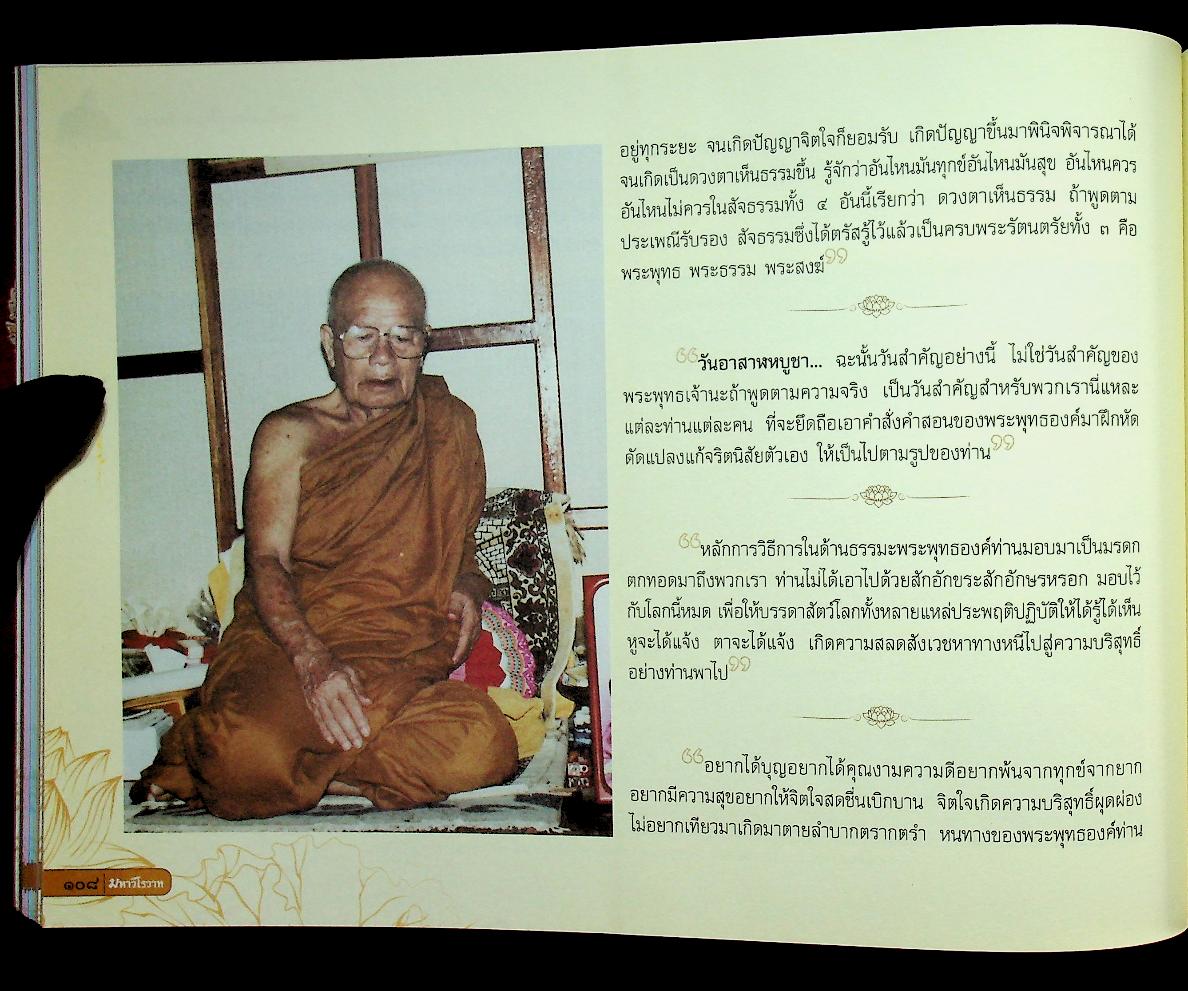 อยู่ทุกระยะ จนเกิดปัญญาจิตใจก็ยอมรับ เกิดปัญญาขึ้นมาพินิจพิจารณาได้
จนเกิดเป็นดวงตาเห็นธรรมขึ้น รู้จักว่าอันไหนมันทุกข์อันไหนมันสุข อันไหนควร
อันไหนไม่ควรในสัจธรรมทั้ง ๔ อันนี้เรียกว่า ดวงตาเห็นธรรม ถ้าพูดตาม
ประเพณีรับรอง สัจธรรมซึ่งได้ตรัสรู้ไว้แล้วเป็นครบพระรัตนตรัยทั้ง ๓ คือ
พระพุทธ พระธรรม พระสงฆ์”
“วันอาสาฬหบูชา... ฉะนั้นวันสำคัญอย่างนี้ ไม่ใช่วันสำคัญของ
พระพุทธเจ้านะถ้าพูดตามความจริง เป็นวันสำคัญสำหรับพวกเรานี่แหละ
แต่ละท่านแต่ละคน ที่จะยึดถือเอาคำสั่งคำสอนของพระพุทธองค์มาฝึกหัด
ดัดแปลงแก้จริตนิสัยตัวเอง ให้เป็นไปตามรูปของท่าน”
“หลักการวิธีการในด้านธรรมะพระพุทธองค์ท่านมอบมาเป็นมรดก
ตกทอดมาถึงพวกเรา ท่านไม่ได้เอาไปด้วยสักอักขระสักอักษรหรอก มอบไว้
กับโลกนี้หมด เพื่อให้บรรดาสัตว์โลกทั้งหลายแหล่ประพฤติปฏิบัติให้ได้รู้ได้เห็น
หูจะได้แจ้ง ตาจะได้แจ้ง เกิดความสลดสังเวชหาทางหนีไปสู่ความบริสุทธิ์
อย่างท่านพาไป”
“อยากได้บุญอยากได้คุณงามความดีอยากพ้นจากทุกข์จากยาก
อยากมีความสุขอยากให้จิตใจสดชื่นเบิกบาน จิตใจเกิดความบริสุทธิ์ผุดผ่อง
ไม่อยากเทียวมาเกิดมาตายลำบากตรากตรำ หนทางของพระพุทธองค์ท่าน
๑๐๘ มหาวีโรวาท